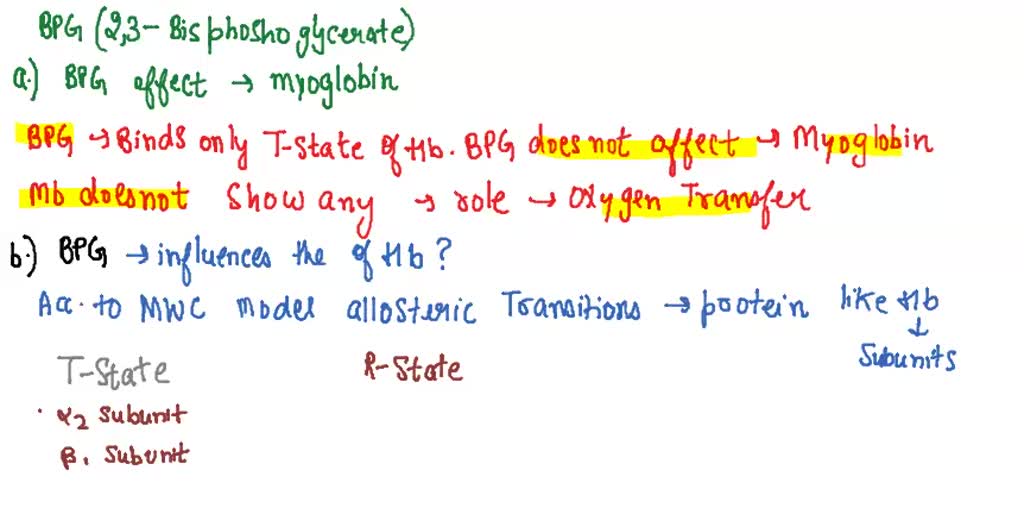 BPG (2,3-Bisphoshoglycerate)
a.) BPG effect → myoglobin
BPG → Binds only T-State of Hb. BPG does not affect → Myoglobin
Mb doesnot Show any → role → Oxygen Transfer
b.) BPG → influences the of Hb?
Acc. to MWC Model allosteric Transitions → protein like Hb
↓
Subunits
T-State R-State
· α2 Subunit
β1 Subunit